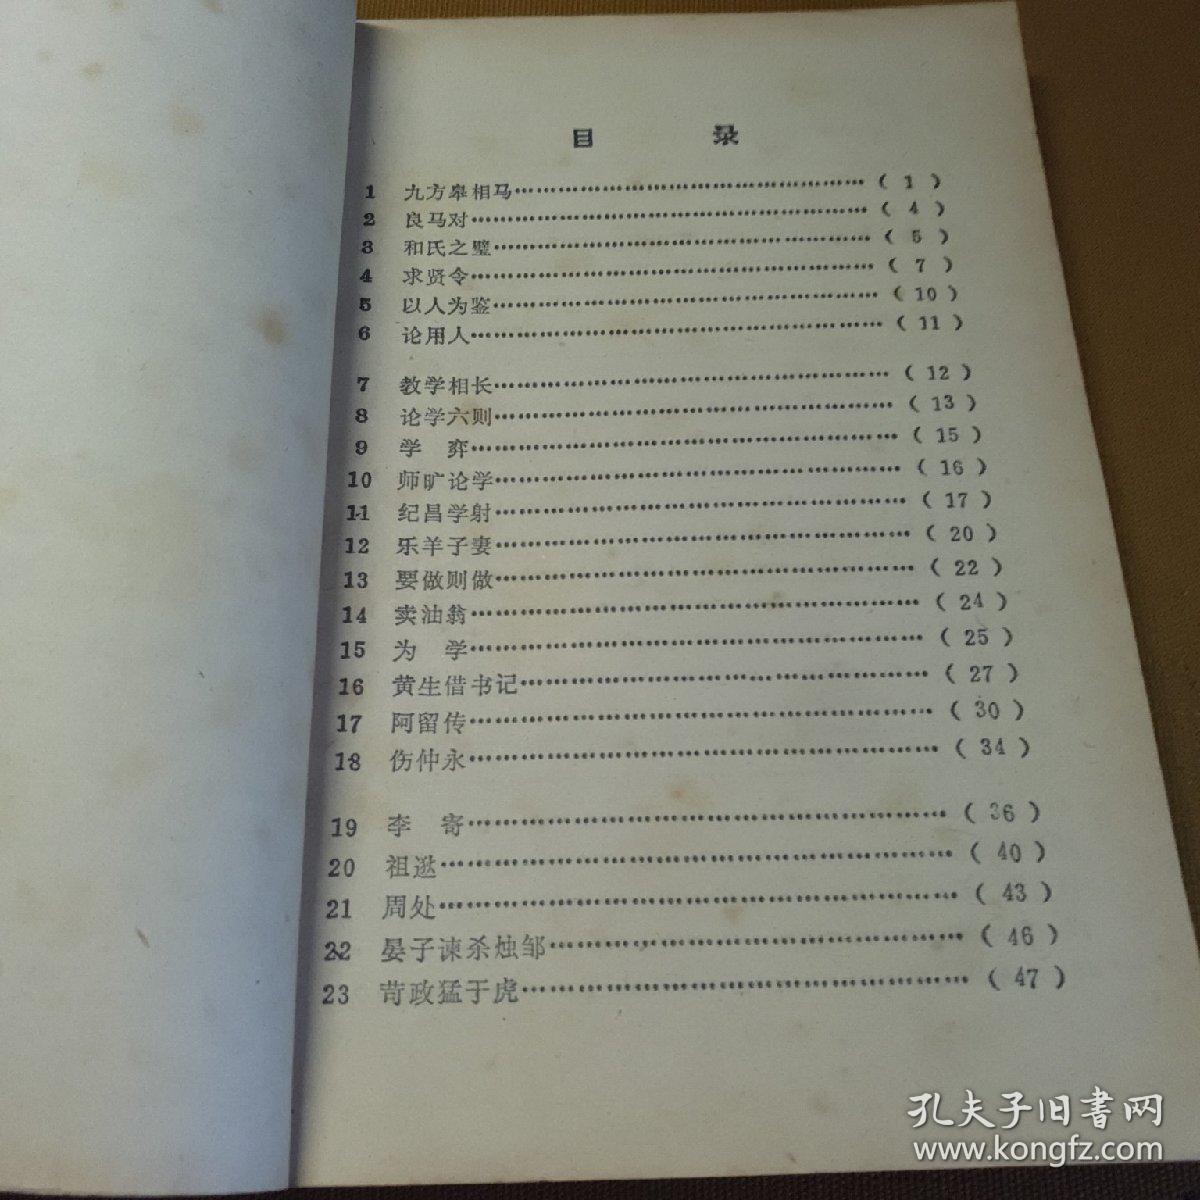 目 录
1 九方皋相马……………………………………( 1 )
2 良马对……………………………………( 4 )
3 和氏之璧……………………………………( 5 )
4 求贤令……………………………………( 7 )
5 以人为鉴……………………………………( 10 )
6 论用人……………………………………( 11 )
7 教学相长……………………………………( 12 )
8 论学六则……………………………………( 13 )
9 学 弈……………………………………( 15 )
10 师旷论学……………………………………( 16 )
11 纪昌学射……………………………………( 17 )
12 乐羊子妻……………………………………( 20 )
13 要做则做……………………………………( 22 )
14 卖油翁……………………………………( 24 )
15 为 学……………………………………( 25 )
16 黄生借书记……………………………………( 27 )
17 阿留传……………………………………( 30 )
18 伤仲永……………………………………( 34 )
19 李 寄……………………………………( 36 )
20 祖逖……………………………………( 40 )
21 周处……………………………………( 43 )
22 晏子谏杀烛邹……………………………………( 46 )
23 苛政猛于虎……………………………………( 47 )
孔夫子旧书网
www.kongfz.com